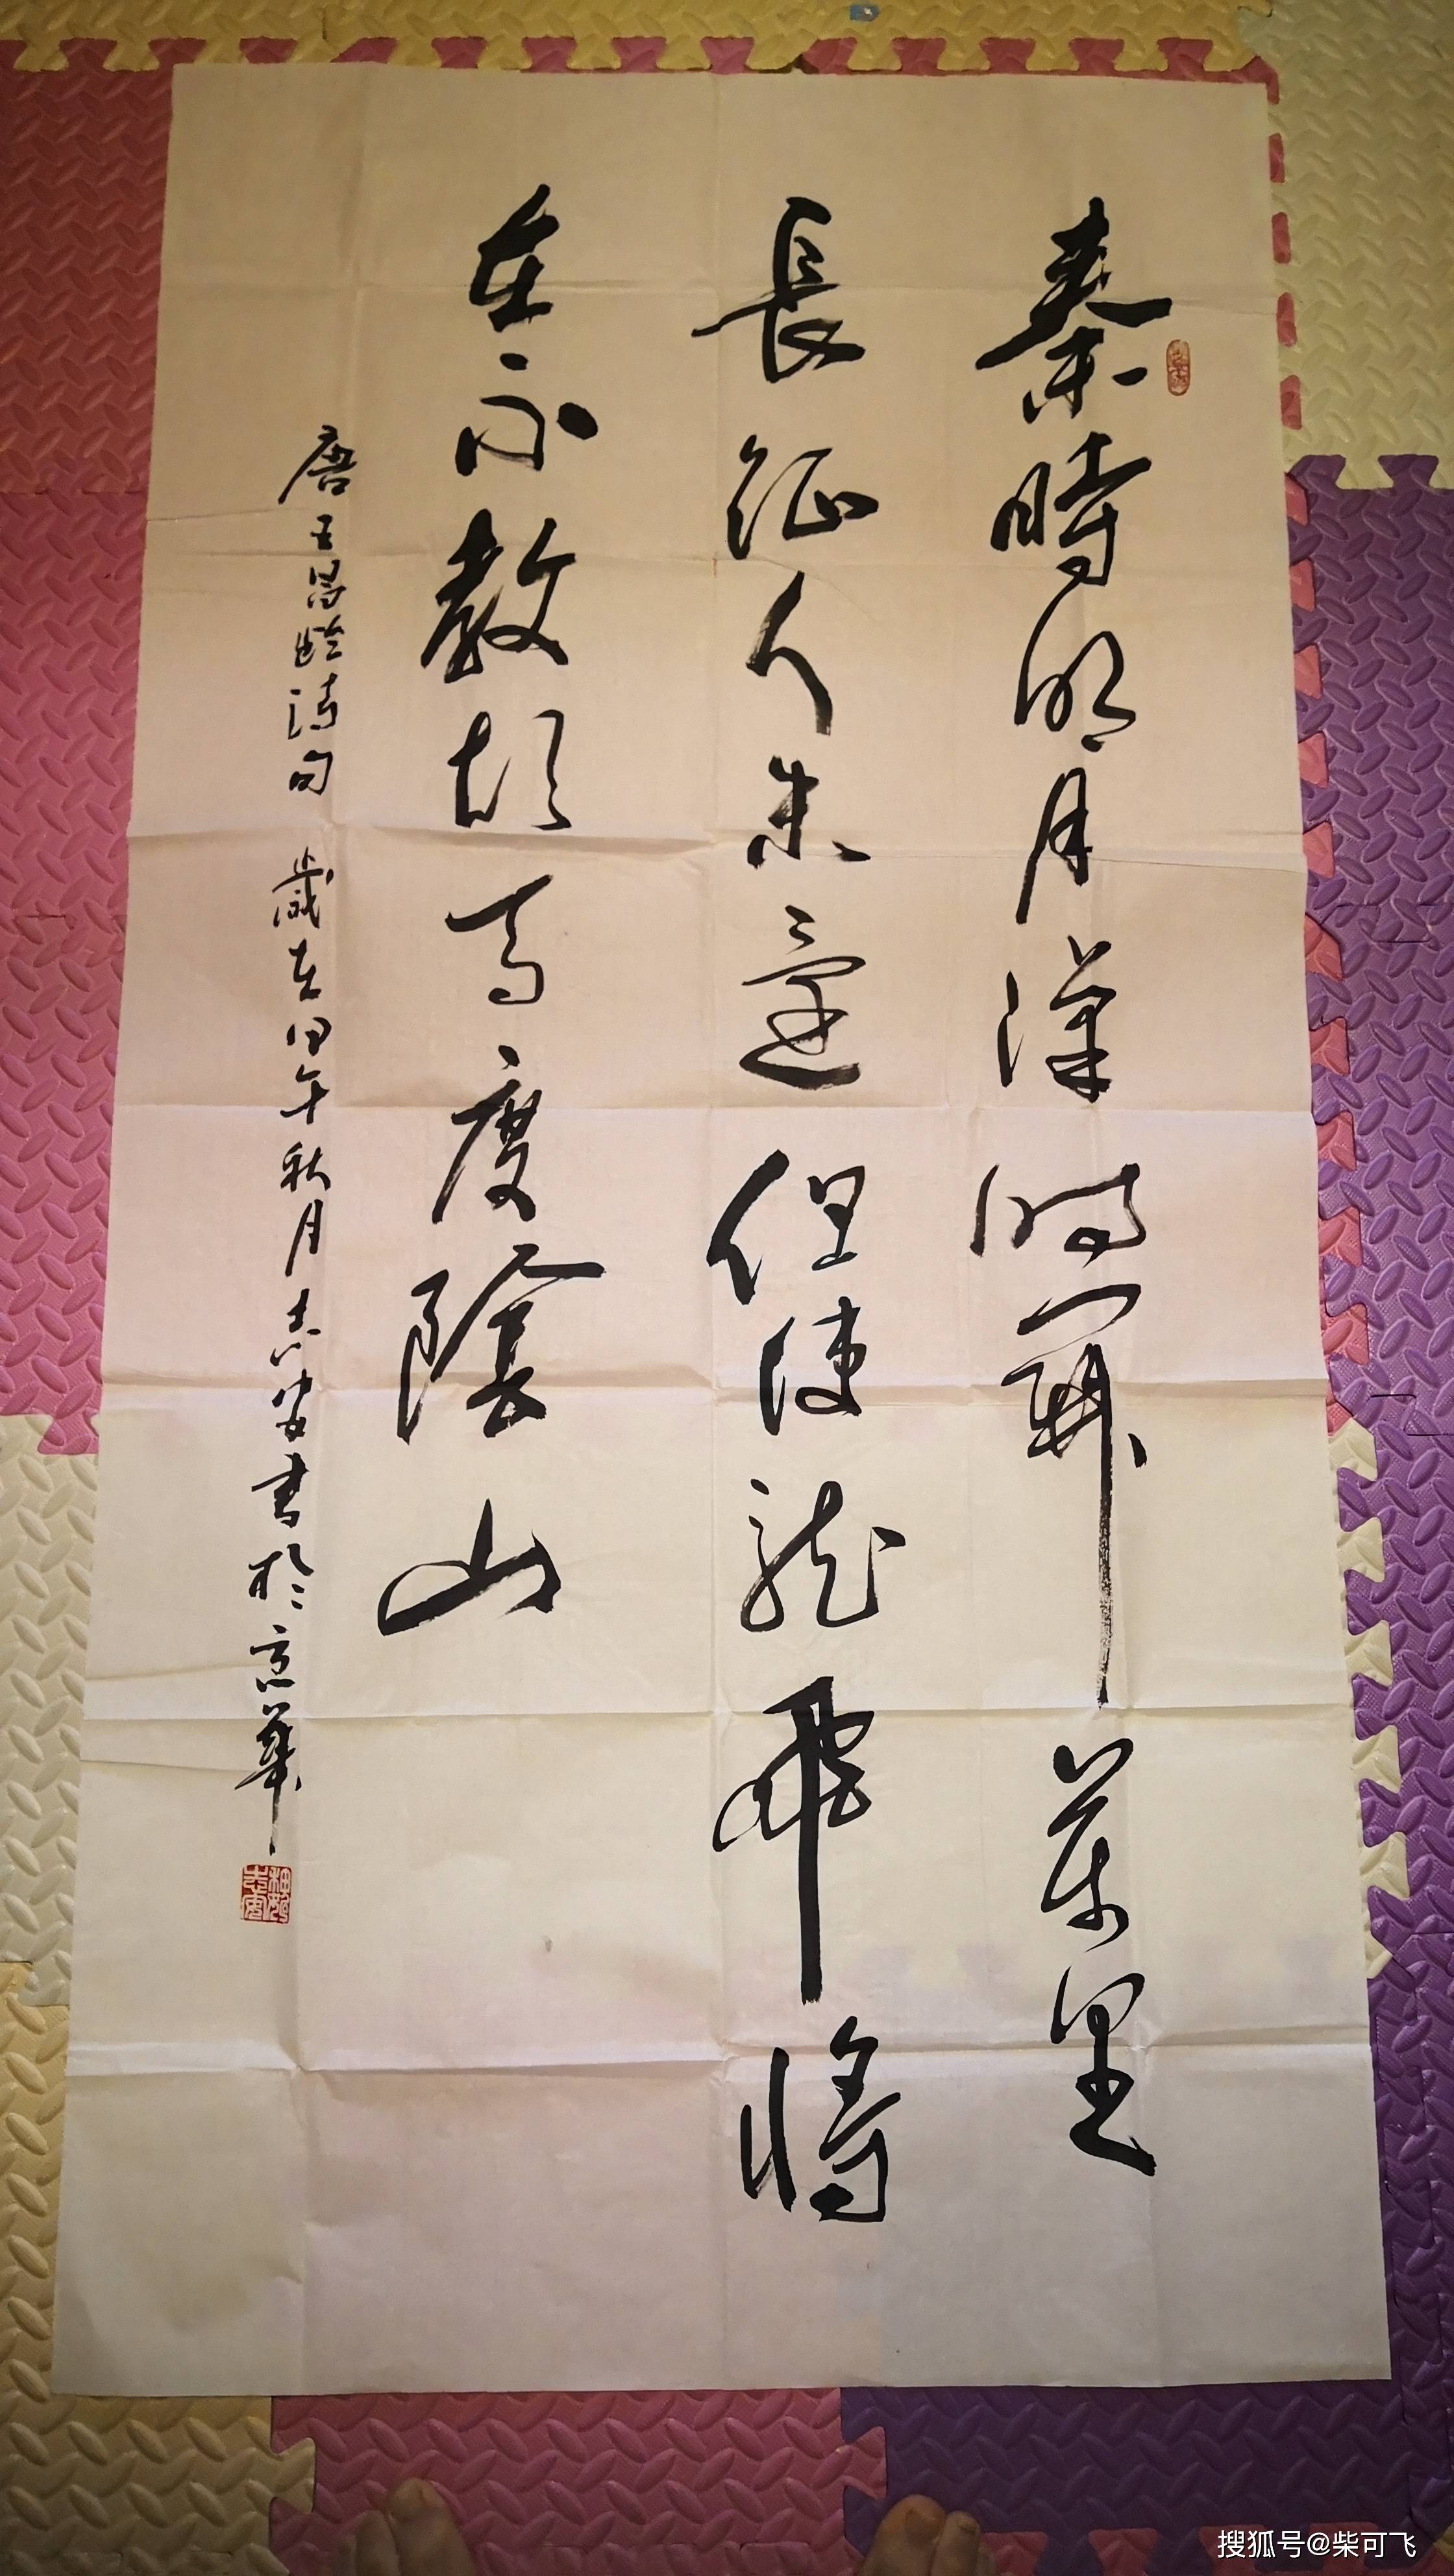 秦時明月漢時關萬里
長征人未還但使龍飛將
在不教胡馬度陰山
唐王昌齡詩句 歲在甲午秋月志安書於京華
搜狐号@柴可飞